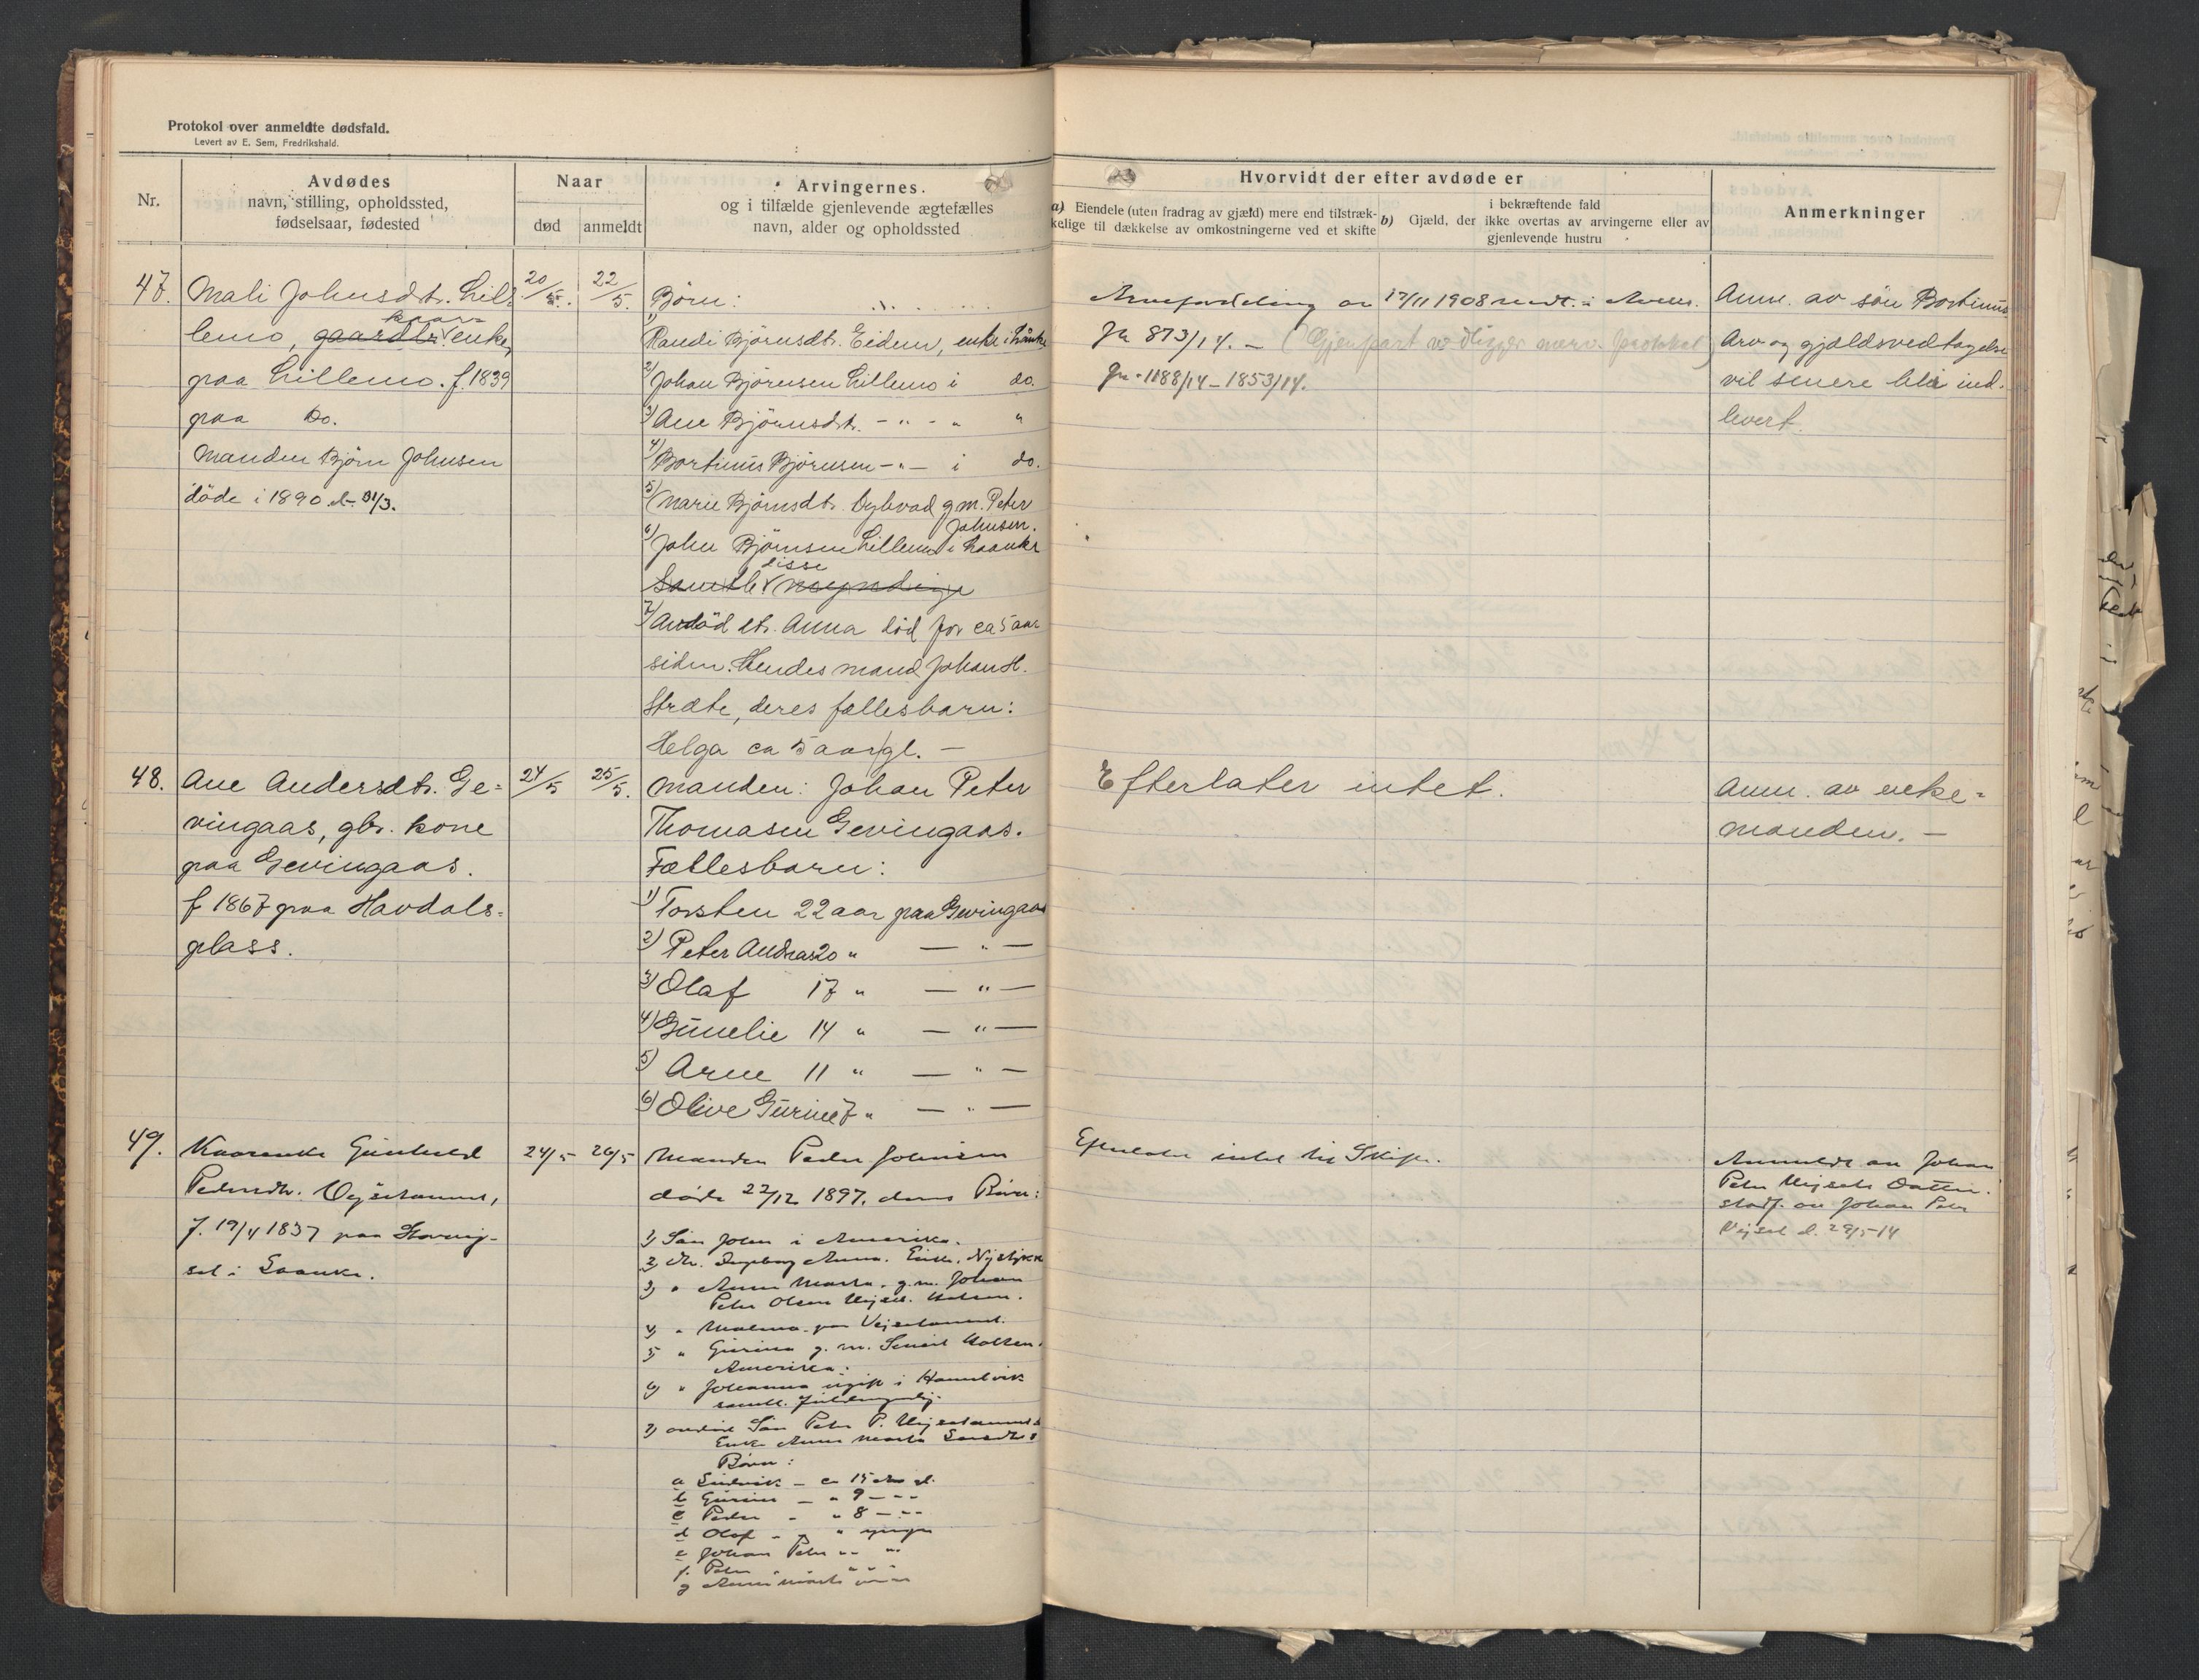 Protokol over anmeldte dødsfald.
Levert av E. Sem, Fredrikshald.
Nr.
Avdødes
navn, stilling, opholdssted,
fødselsaar, fødested
Naar
død
anmeldt
Arvingernes.
og i tilfælde gjenlevende ægtefælles
navn, alder og opholdssted
Hvorvidt der efter avdøde er
a) Eiendele (uten fradrag av gjæld) mere end tilstræk-
kelige til dækkelse av omkostningerne ved et skifte
i bekræftende fald
b) Gjæld, der ikke overtas av arvingerne eller av
gjenlevende hustru
Anmerkninger
47.
Mali Johnsdtr. Lil-
kaar
lemo, gaardbr. enke,
paa Lillemo. f. 1839
paa Do.
Manden Bjørn Johnsen
døde i 1890 d. 31/3.
20/5.
22/5.
Børn:
1) Randi Bjørnsdtr. Eidum, enke i Laanke
2) Johan Bjørnsen Lillemo i do.
3) Ane Bjørnsdtr. - " - " "
4) Bortinus Bjørnsen - " - i do.
5) Marie Bjørnsdtr. Dybvad g.m. Peter
Johnsen.
6) John Bjørnsen Lillemo i Laanke
disse
Samtl. myndige
7) Avdød dtr. Anna død for ca 5 aar
siden. Hendes mand Johan H.
Stræte, deres fællesbarn:
Helga ca 5 aar gl. —
Arvefordeling av 17/11 1908 i
Jn 873/14. — (Gjenpart vedligger protokol)
Jn. 1188/14 – 1853/14.
Anm. av søn Bortinus
Arv og gjældsvedtagelse
vil senere bli ind-
levert.
48.
Ane Andersdtr. Ge-
vingaas, gbr. kone
paa Gevingaas.
f 1867 paa Havdals-
plass.
24/5
25/5.
Manden: Johan Peter
Thomasen Gevingaas.
Fællesbarn:
1) Torsten 22 aar paa Gevingaas
2) Peter Andreas 20 " — " —
3) Olaf 17 " — " —
4) Gunelie 14 " — " —
5) Arne 11 " — " —
6) Olive Gurine 7 " — " —
Efterlater intet.
Anm. av enke-
manden. —
49.
Kaarenke Gunhild
Pedersdtr.
f. 19/4 1837 paa
i Laanke.
24/5
26/5
Manden Peder Johnsen
døde 22/12 1897, deres Børn:
1) Søn John i Amerika.
2) Dtr. Ingeborg Anna. Enke,
3) " Anne Marta. g.m. Johan
Peter Olsen
4) " paa
5) " Gurine g. m.
Amerika.
6) " Johanna ugift i
samtl.
7) avdøde Søn Peter P.
Enke Anne Marta
Børn:
a Ludvik – ca 15 Aar gl.
b – " 9 – " –
c Peder – " 8 – " –
d Olaf – " yngre
e Johan Peter " "
f. Peter " "
g Anne Marta
Efterlater intet til Skifte.
Anmeldt av Johan
Peter
av Johan Peter
d. 29/5-14